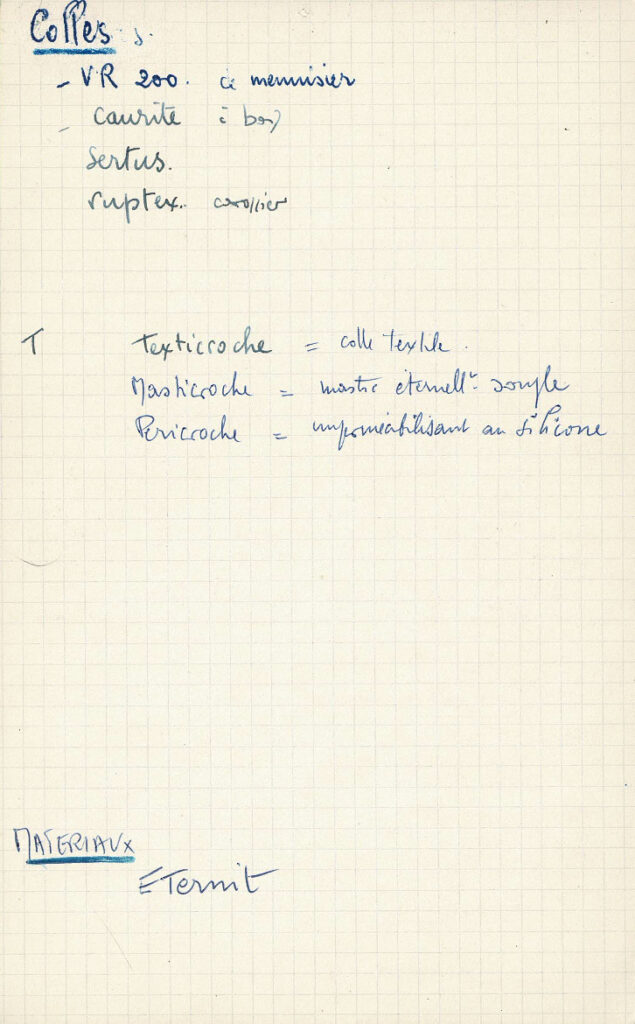 Colles
- VR 200. à menuisier
- Caurite à bois
Sertus.
ruptex. carossier
T Texticroche = colle textile.
Masticroche = mastic éternellt souple
Pericroche = imperméabilisant au silicone
MATERIAUX
ETernit